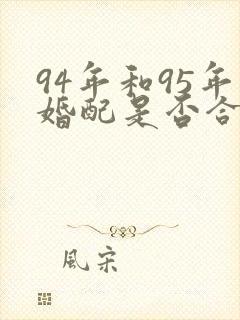 94年和95年
婚配是否合
風宋